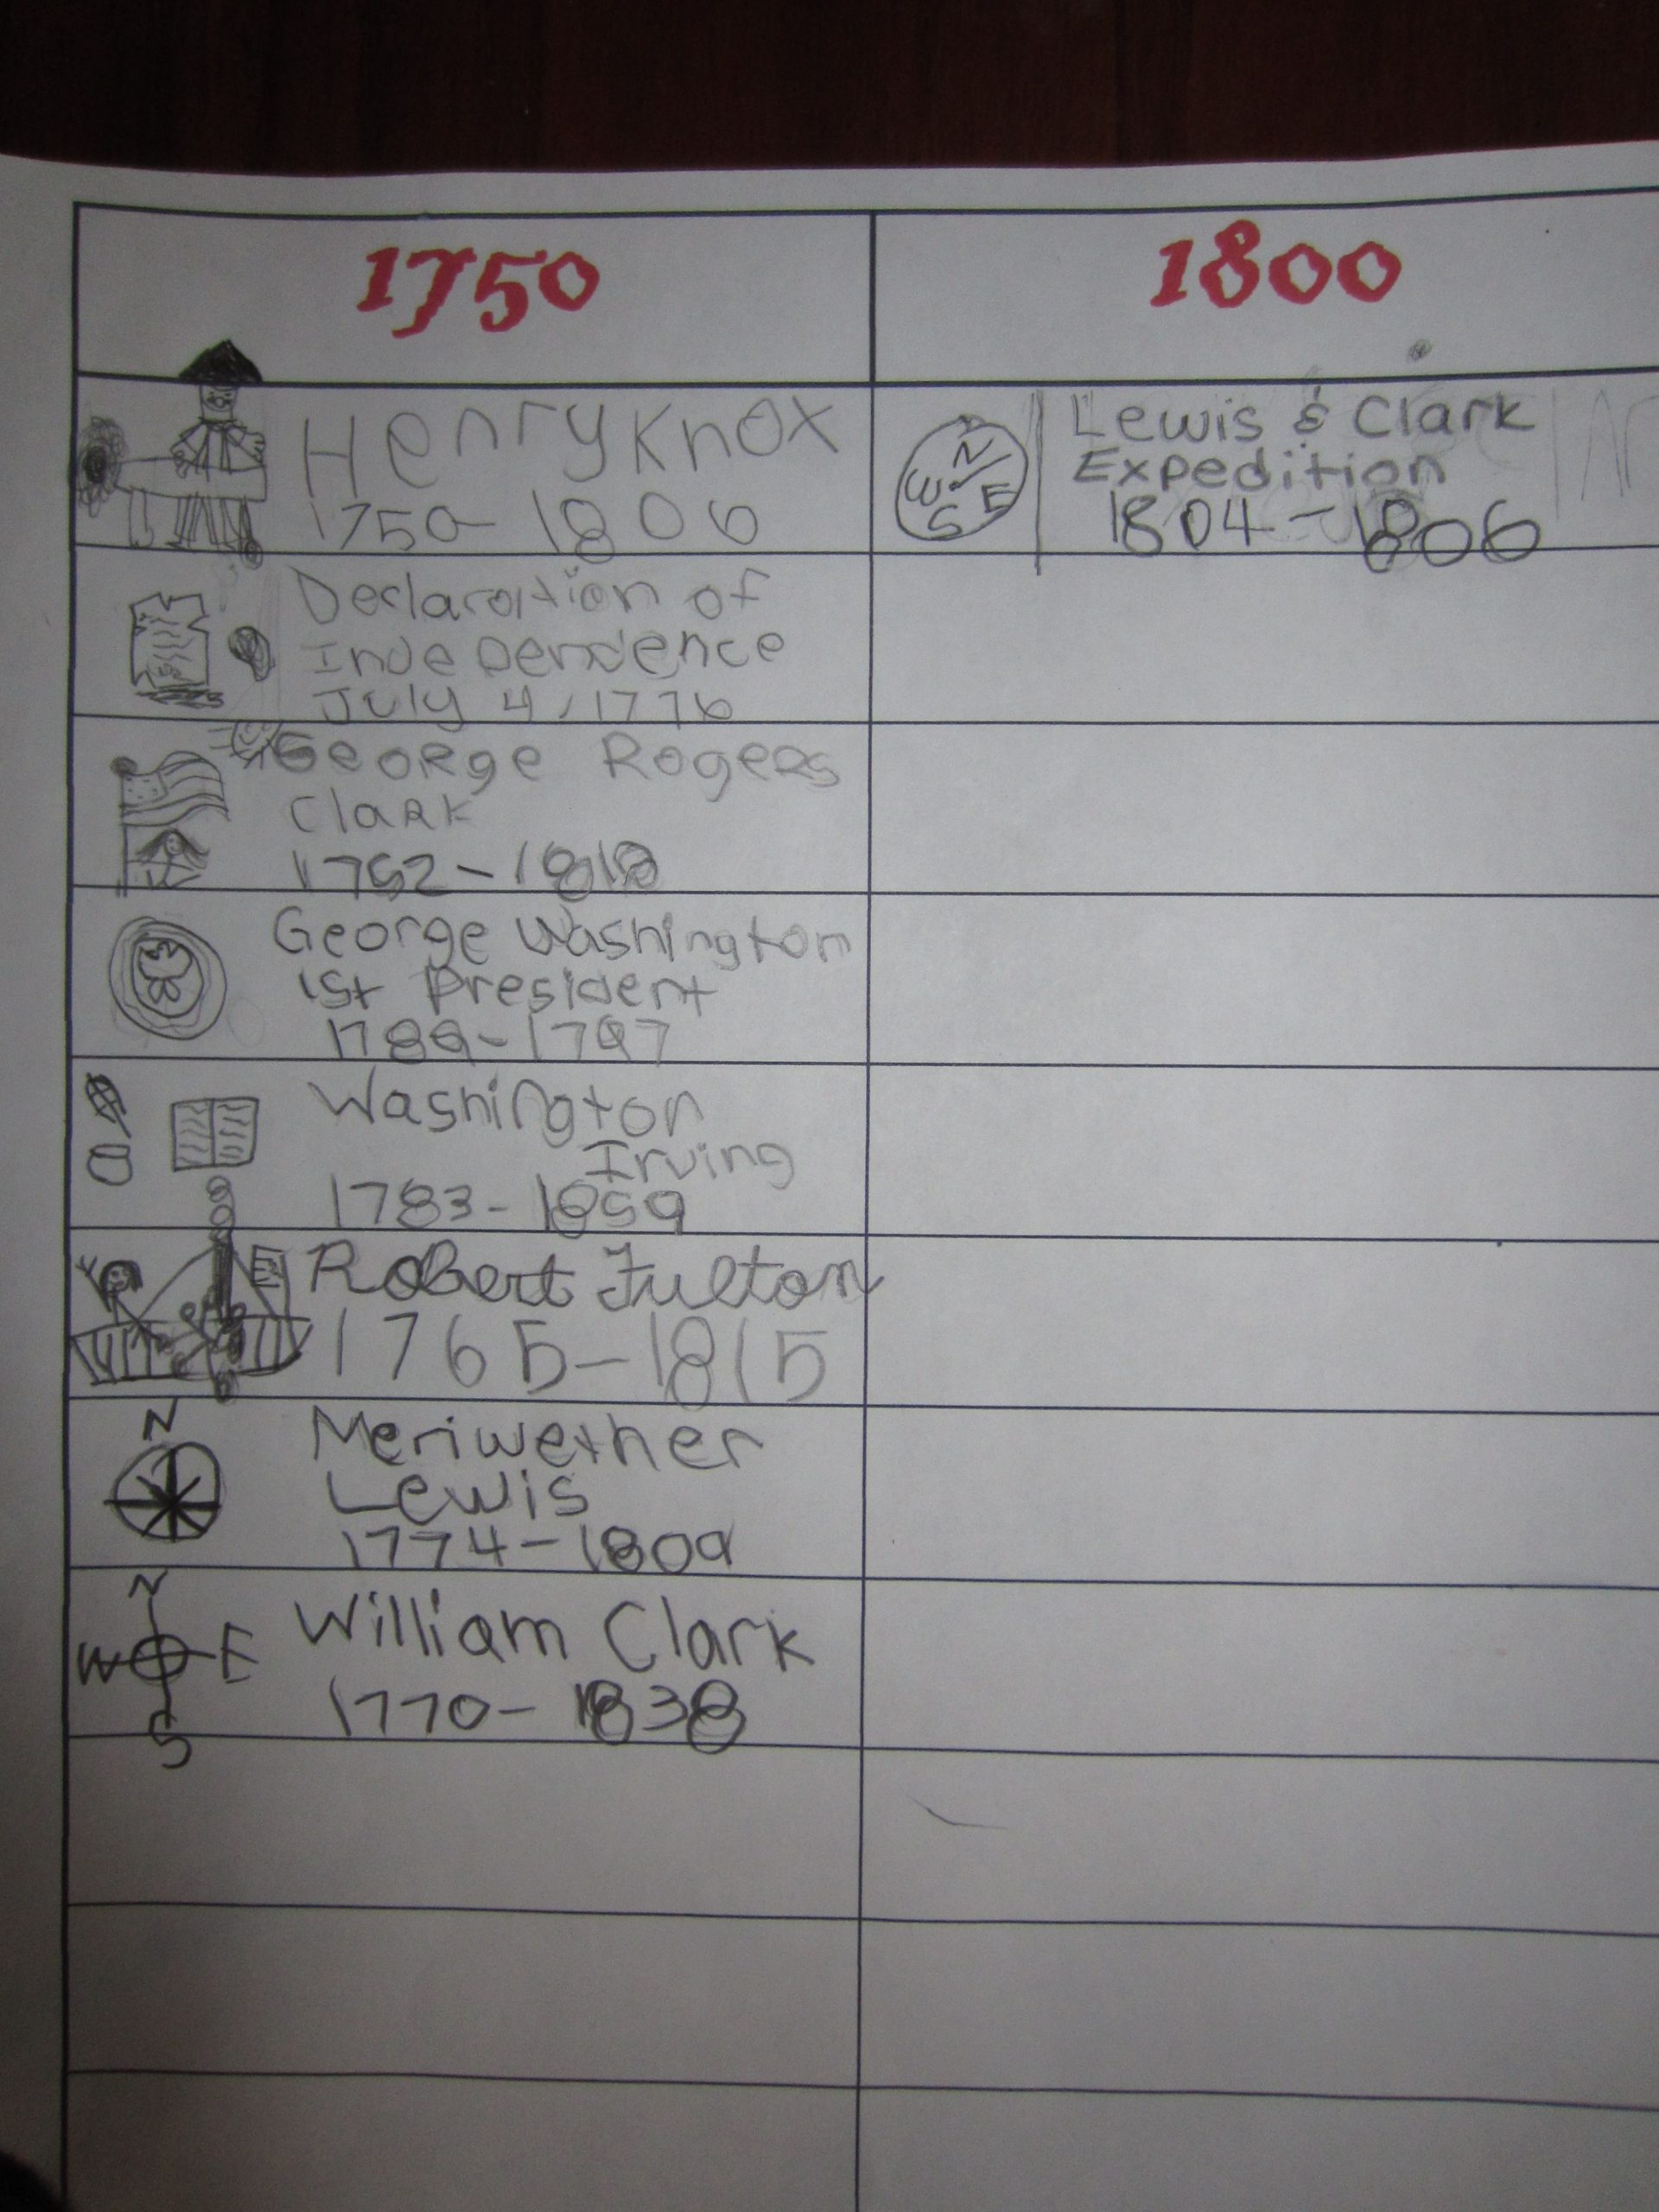 1750
1800
Henry Knox
1750-1806
N
E
S
W
Lewis & Clark
Expedition
1804-1806
Declaration of
Independence
July 4, 1776
George Rogers
Clark
1752-1818
George Washington
1st President
1789-1797
Washington
Irving
1783-1859
Robert Fulton
1765-1815
N
Meriwether
Lewis
1774-1809
N
W
E
S
William Clark
1770-1838